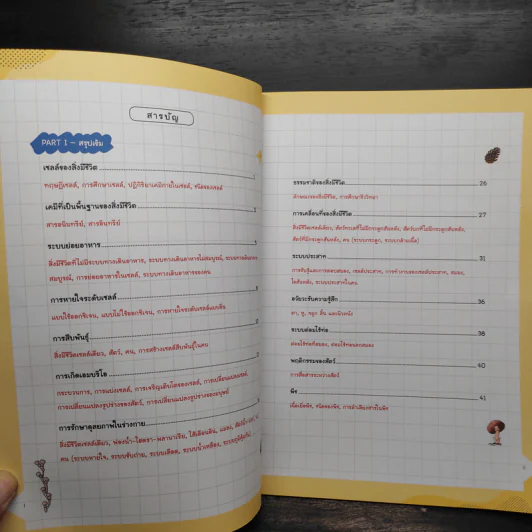 สารบัญ
PART 1 - สรุปเข้ม
เซลล์ของสิ่งมีชีวิต
1
ทฤษฎีเซลล์, การศึกษาเซลล์, ปฏิกิริยาเคมีภายในเซลล์, ชนิดของเซลล์
เคมีที่เป็นพื้นฐานของสิ่งมีชีวิต
สารอนินทรีย์, สารอินทรีย์
ระบบย่อยอาหาร
สิ่งมีชีวิตที่ไม่มีระบบทางเดินอาหาร, ระบบทางเดินอาหารไม่สมบูรณ์, ระบบทางเดินอาหาร
สมบูรณ์, การย่อยอาหารในเซลล์, ระบบทางเดินอาหารของคน
การหายใจระดับเซลล์
แบบใช้ออกซิเจน, แบบไม่ใช้ออกซิเจน, การหายใจระดับเซลล์แบบอื่น
การสืบพันธุ์
สิ่งมีชีวิตเซลล์เดียว, สัตว์, คน, การสร้างเซลล์สืบพันธุ์ในคน
การเกิดเอมบริโอ
กระบวนการ, การแบ่งเซลล์, การเจริญเติบโตของเซลล์, การเปลี่ยนแปลงเซลล์,
การเปลี่ยนแปลงรูปร่างของสัตว์, การเปลี่ยนแปลงรูปร่างของมนุษย์
การรักษาดุลยภาพในร่างกาย
สิ่งมีชีวิตเซลล์เดียว, ฟองน้ำ-ไฮดรา-พลานาเรีย, ไส้เดือนดิน, แมลง,
คน (ระบบหายใจ, ระบบขับถ่าย, ระบบเลือด, ระบบน้ำเหลือง, ระบบภูมิคุ้มกัน)
ธรรมชาติของสิ่งมีชีวิต 26
ลักษณะของสิ่งมีชีวิต, การศึกษาชีววิทยา
การเคลื่อนที่ของสิ่งมีชีวิต 27
สิ่งมีชีวิตเซลล์เดียว, สัตว์ทะเลที่ไม่มีกระดูกสันหลัง, สัตว์บกที่ไม่มีกระดูกสันหลัง,
สัตว์ที่มีกระดูกสันหลัง, คน (ระบบกระดูก, ระบบกล้ามเนื้อ)
ระบบประสาท 31
การรับรู้และการตอบสนอง, เซลล์ประสาท, การทำงานของเซลล์ประสาท, สมอง,
ไขสันหลัง, ระบบประสาทในคน
อวัยวะรับความรู้สึก 36
ตา, หู, จมูก, ลิ้น และผิวหนัง
ระบบต่อมไร้ท่อ 38
ต่อมไร้ท่อในสมอง, ต่อมไร้ท่อนอกสมอง
พฤติกรรมของสัตว์ 40
การสื่อสารระหว่างสัตว์
พืช 41
เนื้อเยื่อพืช, ชนิดของพืช, การลำเลียงสารในพืช